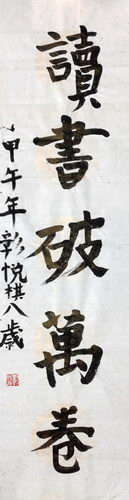 讀書破萬卷
甲午年彭悅棋八歲